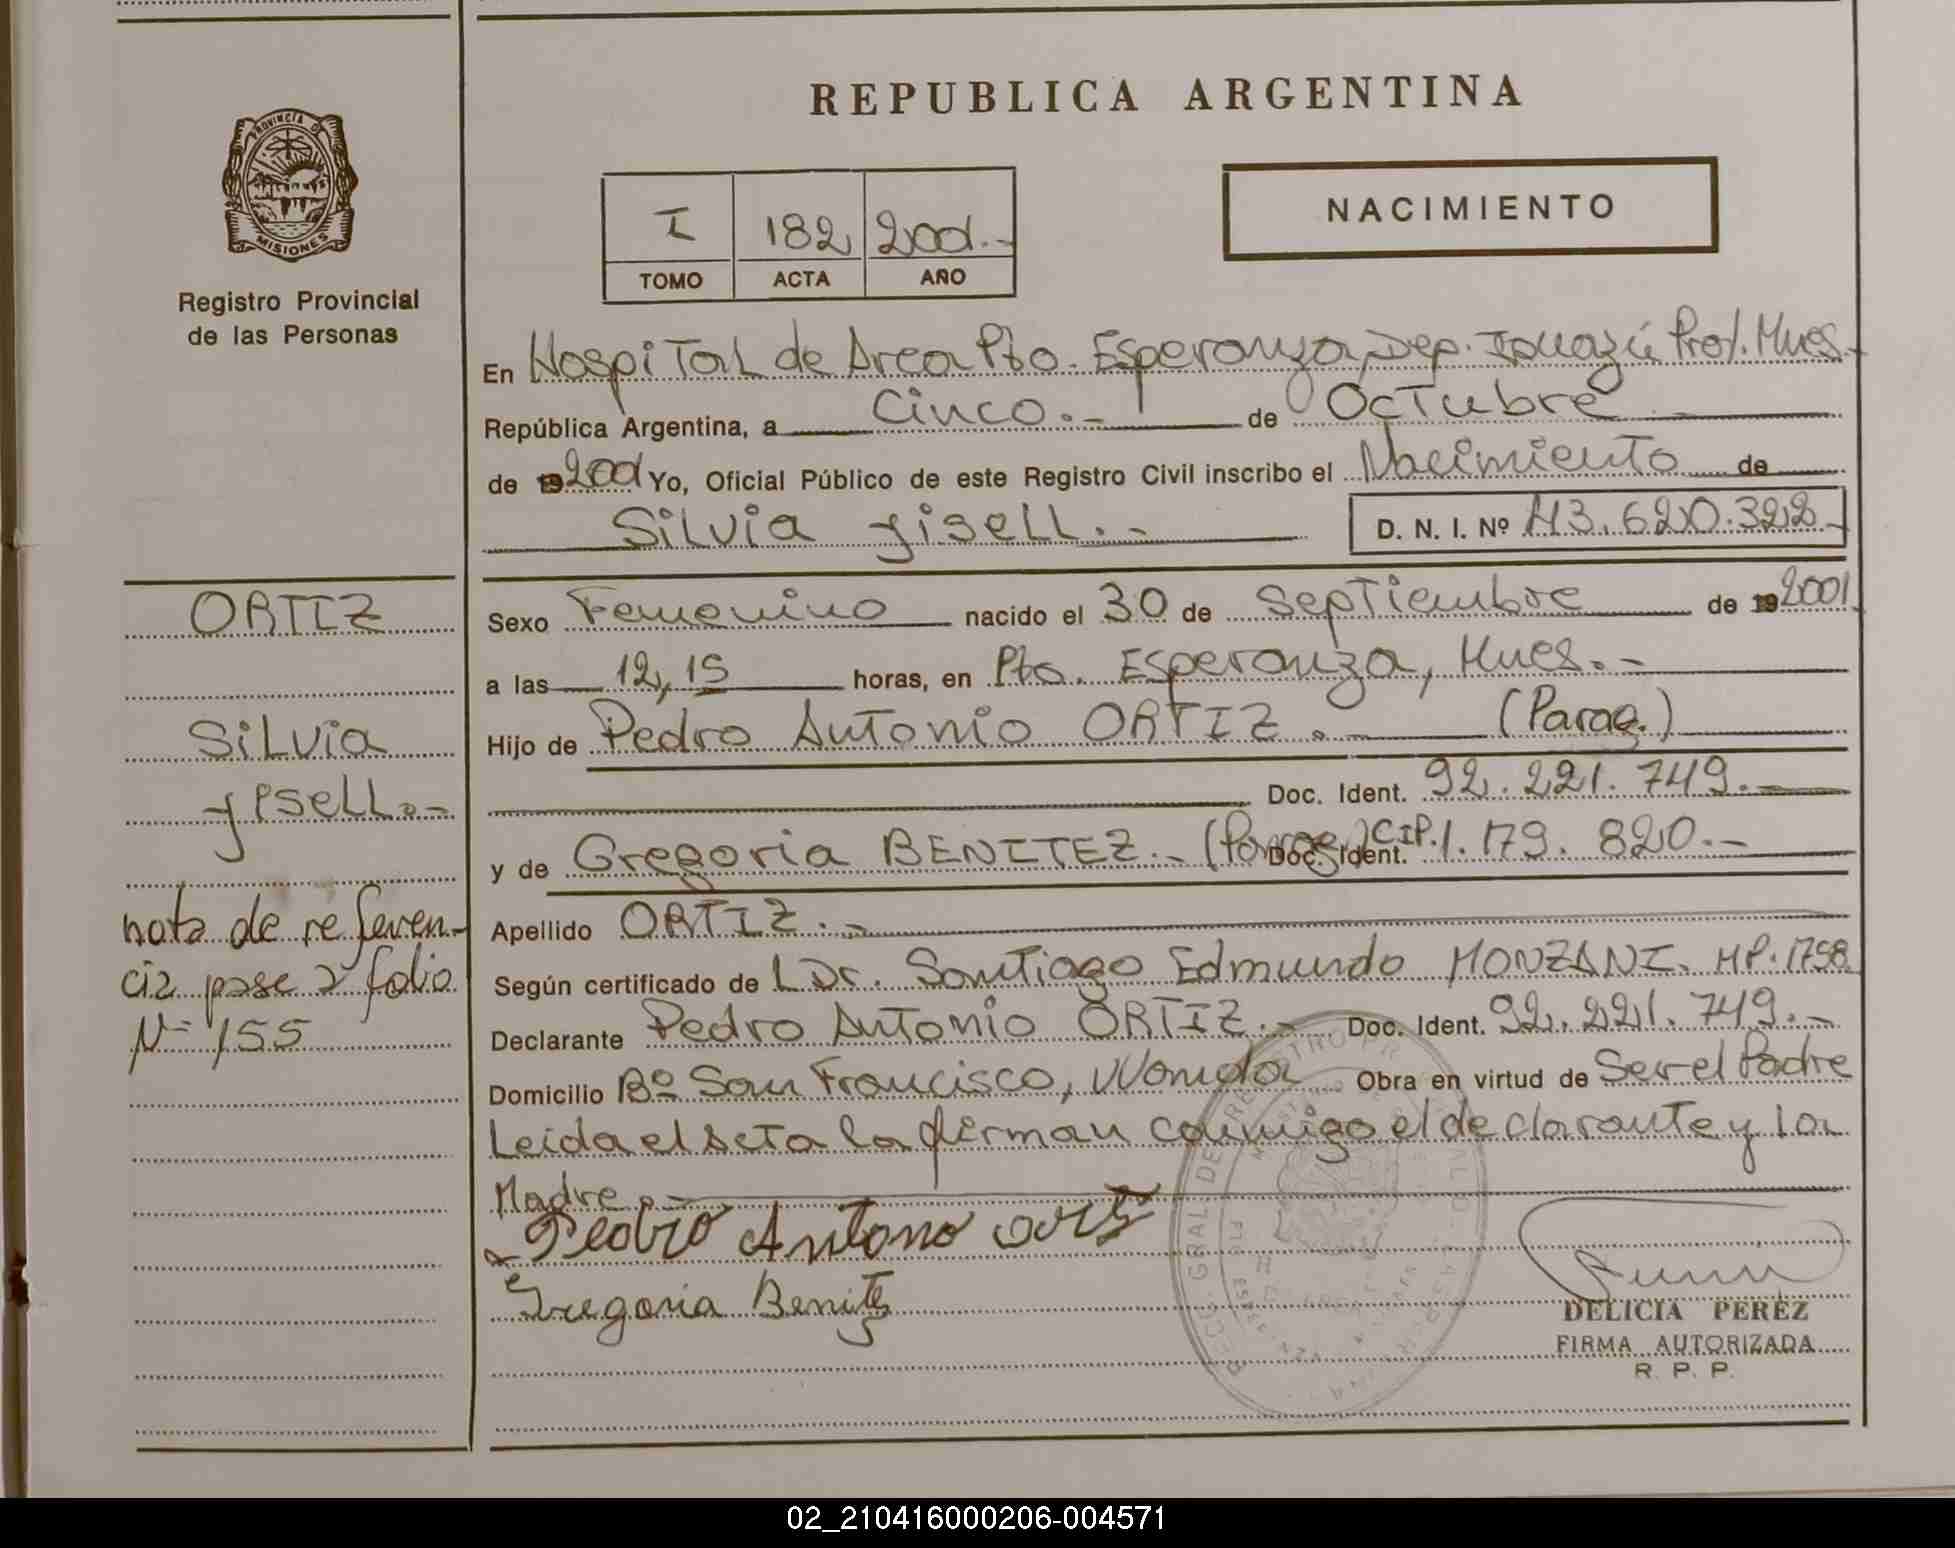 REPUBLICA ARGENTINA
PROVINCIA DE
MISIONES
Registro Provincial
de las Personas
I 182 2001.-
TOMO ACTA AÑO
NACIMIENTO
En Hospital de Area Pto. Esperanza, Dep. Iguazú Prov. Mnes.-
República Argentina, a Cinco.- de Octubre
de 192001 Yo, Oficial Público de este Registro Civil inscribo el Nacimiento de
Silvia Yisell.- D. N. I. Nº 43.620.322-
ORTIZ
Silvia
Yisell.-
nota de referen-
cia pase a folio
Nº 155
Sexo Femenino nacido el 30 de Septiembre de 192001
a las 12,15 horas, en Pto. Esperanza, Mnes.-
Hijo de Pedro Antonio ORTIZ.- (Parag.)
Doc. Ident. 92.221.749.-
y de Gregoria BENITEZ.- (Parag.) Doc. Ident. CIP. 1.179.820.-
Apellido ORTIZ.-
Según certificado de L Dr. Santiago Edmundo MONZANI. MP.1758
Declarante Pedro Antonio ORTIZ.- Doc. Ident. 92.221.749.-
Domicilio Bº San Francisco, Wanda Obra en virtud de Ser el Padre
Leida el Acta la firman conmigo el declarante y la
Madre.-
Pedro Antono ortiz
Gregoria Benitez
DELICIA PEREZ
FIRMA AUTORIZADA
R. P. P.
02_210416000206-004571